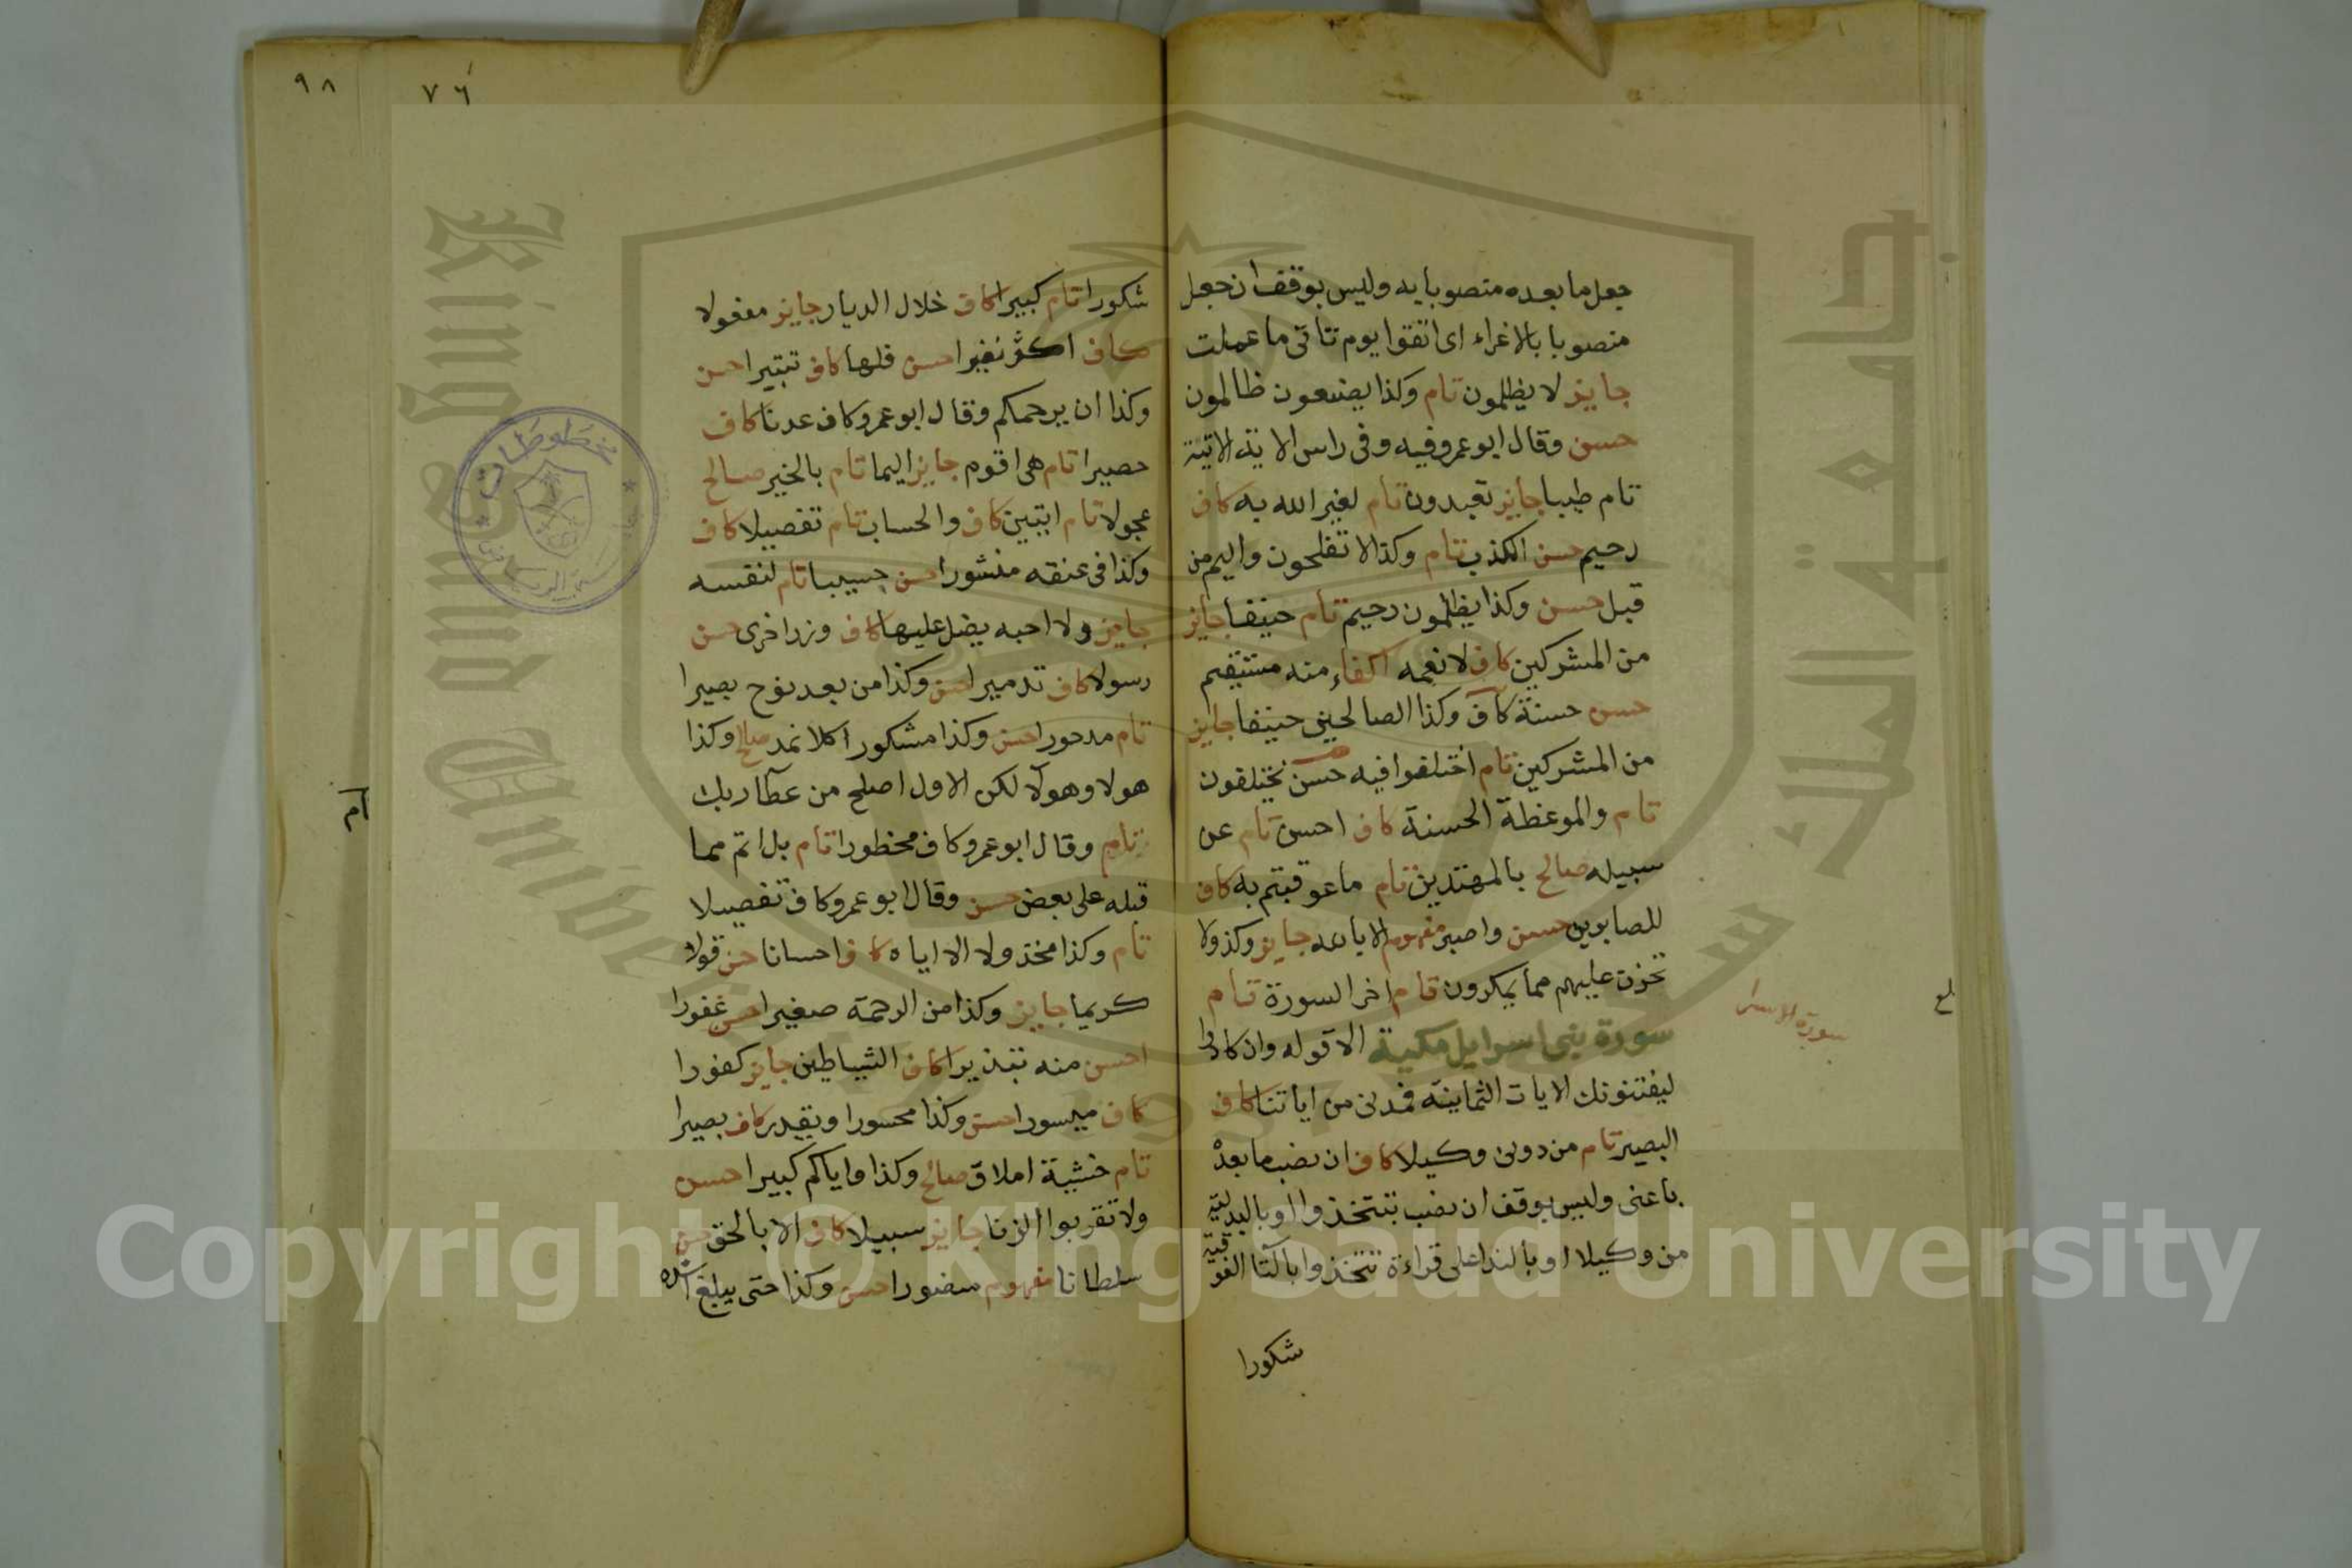 جعل ما بعده منصوبا به وليس بوقف ان جعل
منصوبا بالاغراء اى اتقوا يوم تاتى ما عملت
جايز لا يظلمون تام وكذا يصنعون ظالمون
حسن وقال ابو عمرو فيه وفى راس الاية الاتية
تام طيبا جايز تعبدون تام لغير الله به كاف
رحيم حسن الكذب تام وكذا لا تفلحون واليم من
قبل حسن وكذا يظلمون رحيم تام حنيفا جايز
من المشركين كاف لانعمه اكفاء منه مستقيم
حسن حسنة كاف وكذا الصالحين حنيفا جايز
من المشركين تام اختلفوا فيه حسن يختلفون
تام والموعظة الحسنة كاف احسن تام عن
سبيله صالح بالمهتدين تام ما عوقبتم به كاف
للصابرين حسن واصبر مفهوم الا بالله جايز وكذ ولا
تحزن عليهم مما يمكرون تام اخر السورة تام
سورة بنى اسرايل مكية الا قوله وان كادوا
ليفتنونك الايات الثمانية فمدنى من اياتنا كاف
البصير تام من دونى وكيلا كاف ان نصب ما بعده
باعنى وليس بوقف ان نصب بتتخذوا او بالبدلية
من وكيلا او بالندا على قراءة تتخذوا بالتا الفوقية
شكورا
سورة الاسرا
٩٨
٧٦
شكورا تام كبيرا كاف خلال الديار جايز مفعولا
كاف اكثر نفيرا حسن فلها كاف تتبيرا حسن
وكذا ان يرحمكم وقال ابو عمرو كاف عدنا كاف
حصيرا تام هى اقوم جايز اليما تام بالخير صالح
عجولا تام ايتين كاف والحساب تام تفصيلا كاف
وكذا فى عنقه منشورا حسن حسيبا تام لنفسه
جايز ولا احبه يضل عليها كاف وزر اخرى حسن
رسولا كاف تدميرا حسن وكذا من بعد نوح بصيرا
تام مدحورا حسن وكذا مشكورا كلا نمد صالح وكذا
هولا وهولا لكن الاول اصلح من عطا ربك
تام وقال ابو عمرو كاف محظورا تام بل اتم مما
قبله على بعض حسن وقال ابو عمرو كاف تفصيلا
تام وكذا مخذولا الا اياه كاف احسانا حسن قولا
كريما جايز وكذا من الرحمة صغيرا حسن غفورا
احسن منه تبذيرا كاف الشياطين جايز كفورا
كاف ميسورا حسن وكذا محسورا ويقدر كاف بصيرا
تام خشية املاق صالح وكذا واياكم كبيرا حسن
ولا تقربوا الزنا جايز سبيلا كاف الا بالحق حسن
سلطانا مفهوم منصورا حسن وكذا حتى يبلغ اشده
مخطوطات
جامعة الملك سعود
King Saud University
1957
Copyright © King Saud University